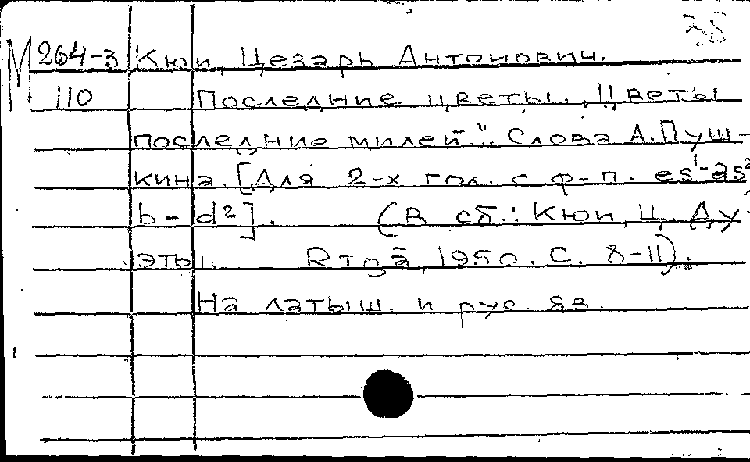 38
М 264-3 Кюи, Цезарь Антонович.
110 Последние цветы. „Цветы
последние милей". Слова А. Пуш-
кина. [Для 2-х гол. с ф-п. es¹-as²,
h-d²]. (В сб.: Кюи, Ц. Ду-
эты. Rīgā, 1950. С. 8-11).
На латыш. и рус. яз.